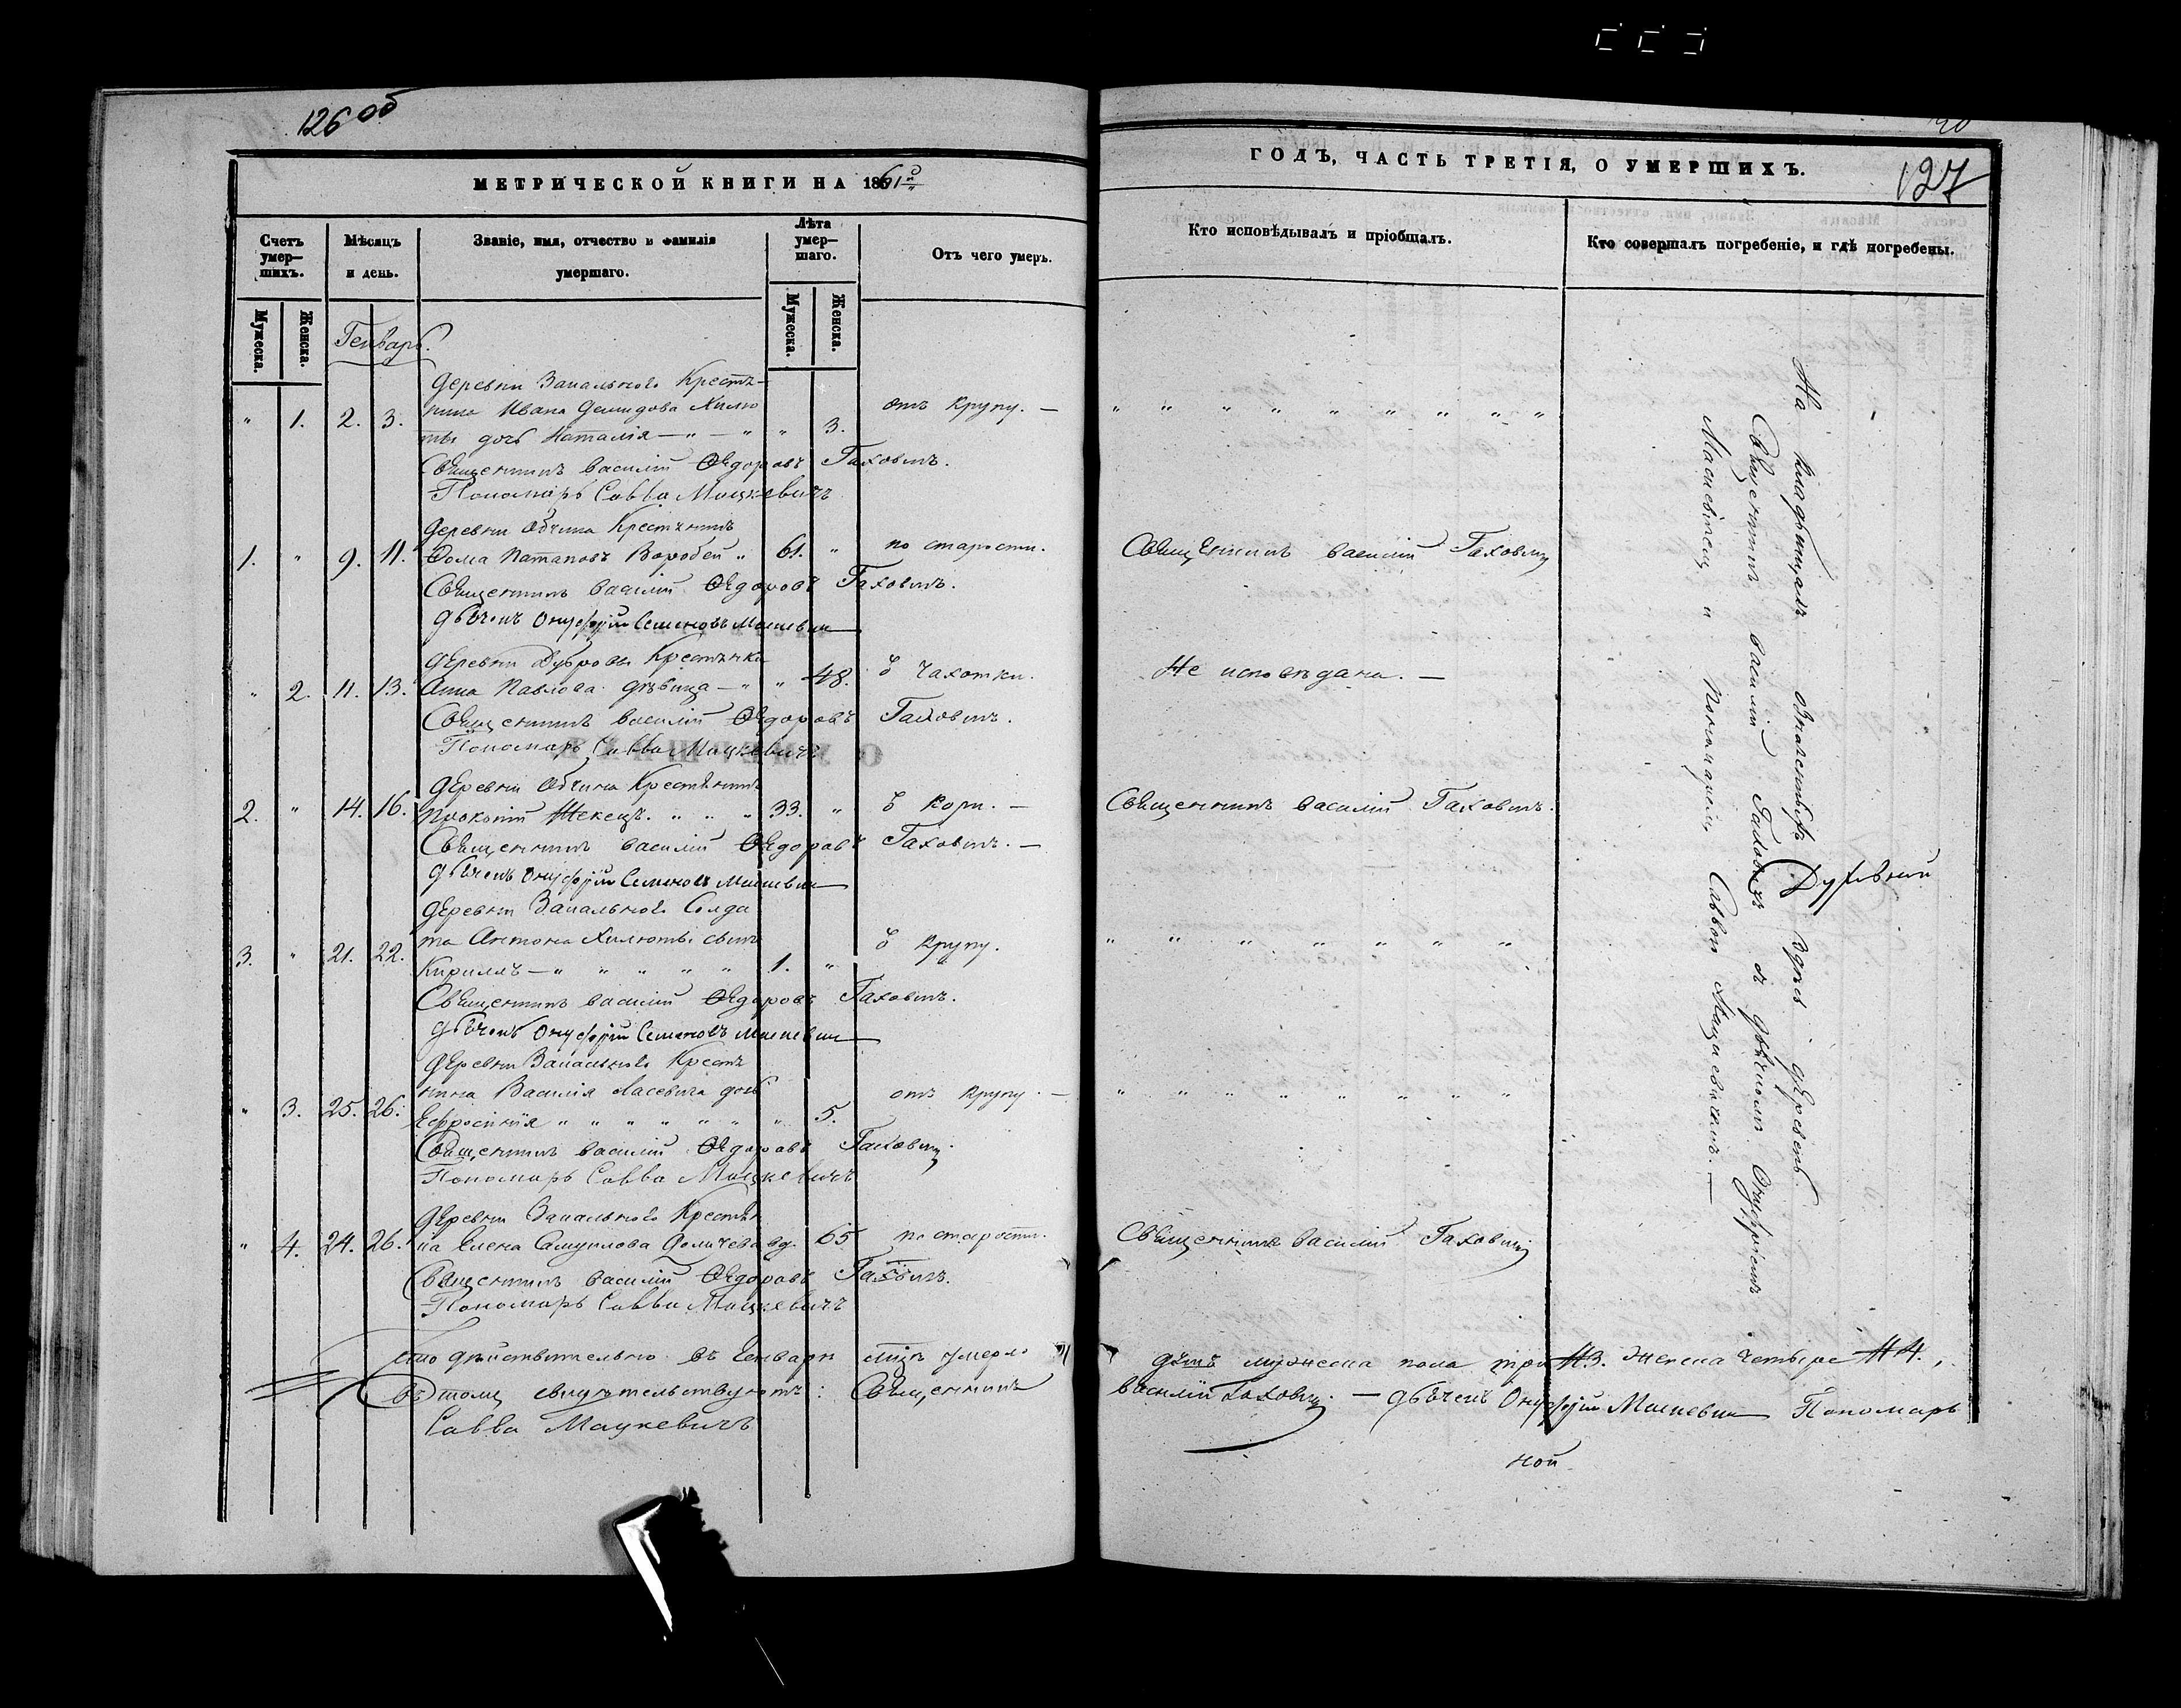 126 об
МЕТРИЧЕСКОЙ КНИГИ НА 1861й
Счетъ умершихъ.
Мѣсяцъ и день.
Званіе, имя, отчество и фамилія умершаго.
Лѣта умершаго.
Отъ чего умеръ.
Мужеска. Женска.
Мужеска. Женска.
Генварь.
деревни Запальнаго Крестья-
" 1. 2. 3. нина Ивана Демидова Хилю " 3. отъ крупу. —
ты дочь Наталія — " — "
Священникъ Василій Ѳедоровъ Гаховичъ.
Пономарь Савва Мацкевичъ
деревни Обчина Крестьянинъ
1. " 9. 11. Ѳома Патаповъ Воробей " 61. " по старости.
Священникъ Василій Ѳедоровъ Гаховичъ.
дьячекъ Онуфрій Семеновъ
деревни Дубровы Крестьянка
" 2. 11. 13. Анна Павлова дѣвица — " " 48. ъ чахотки.
Священникъ Василій Ѳедоровъ Гаховичъ.
Пономарь Савва Мацкевичъ
деревни Обчина Крестьянинъ
2. " 14. 16. Прокопій Жекецъ. " " " 33. " ъ кори. —
Священникъ Василій Ѳедоровъ Гаховичъ. —
дьячекъ Онуфрій Семеновъ
деревни Запальнаго Солда
3. " 21. 22. та Антона Хилюты сынъ ъ крупу.
Кириллъ — " " " " " 1. "
Священникъ Василій Ѳедоровъ Гаховичъ.
дьячекъ Онуфрій Семеновъ
деревни Запальнаго Кресть
нина Василія Ласевича дочь отъ крупу. —
" 3. 25. 26. Ефросинія " " " " " " " 5.
Священникъ Василій Ѳедоровъ Гаховичъ
Пономарь Савва Мацкевичъ
деревни Запальнаго Крестьян
" 4. 24. 26. ка Елена Самуилова вд. 65 по старости.
Священникъ Василій Ѳедоровъ Гаховичъ.
Пономарь Савва Мацкевичъ
Что дѣйствительно въ Генварѣ мѣсяцѣ умерло
въ томъ свидѣтельствуютъ: Священникъ
Савва Мацкевичъ
127
ГОДЪ, ЧАСТЬ ТРЕТІЯ, О УМЕРШИХЪ.
Кто исповѣдывалъ и пріобщалъ.
Кто совершалъ погребеніе, и гдѣ погребены.
" " " " " " " " "
Священникъ Василій Гаховичъ
Не исповѣдана. —
Священникъ Василій Гаховичъ.
" " " " " " "
" " " " " " " "
Священникъ Василій Гаховичъ
На кладбищахъ означенныхъ здѣсь деревень
Священникъ Василій Гаховичъ съ дьячкомъ Онуфріемъ
и Пономаремъ Саввой Мацкевичемъ. —
душъ мужеска пола три №3. Женска четыре №4.,
Василій Гаховичъ. — дьячекъ Онуфрій Пономарь
ной